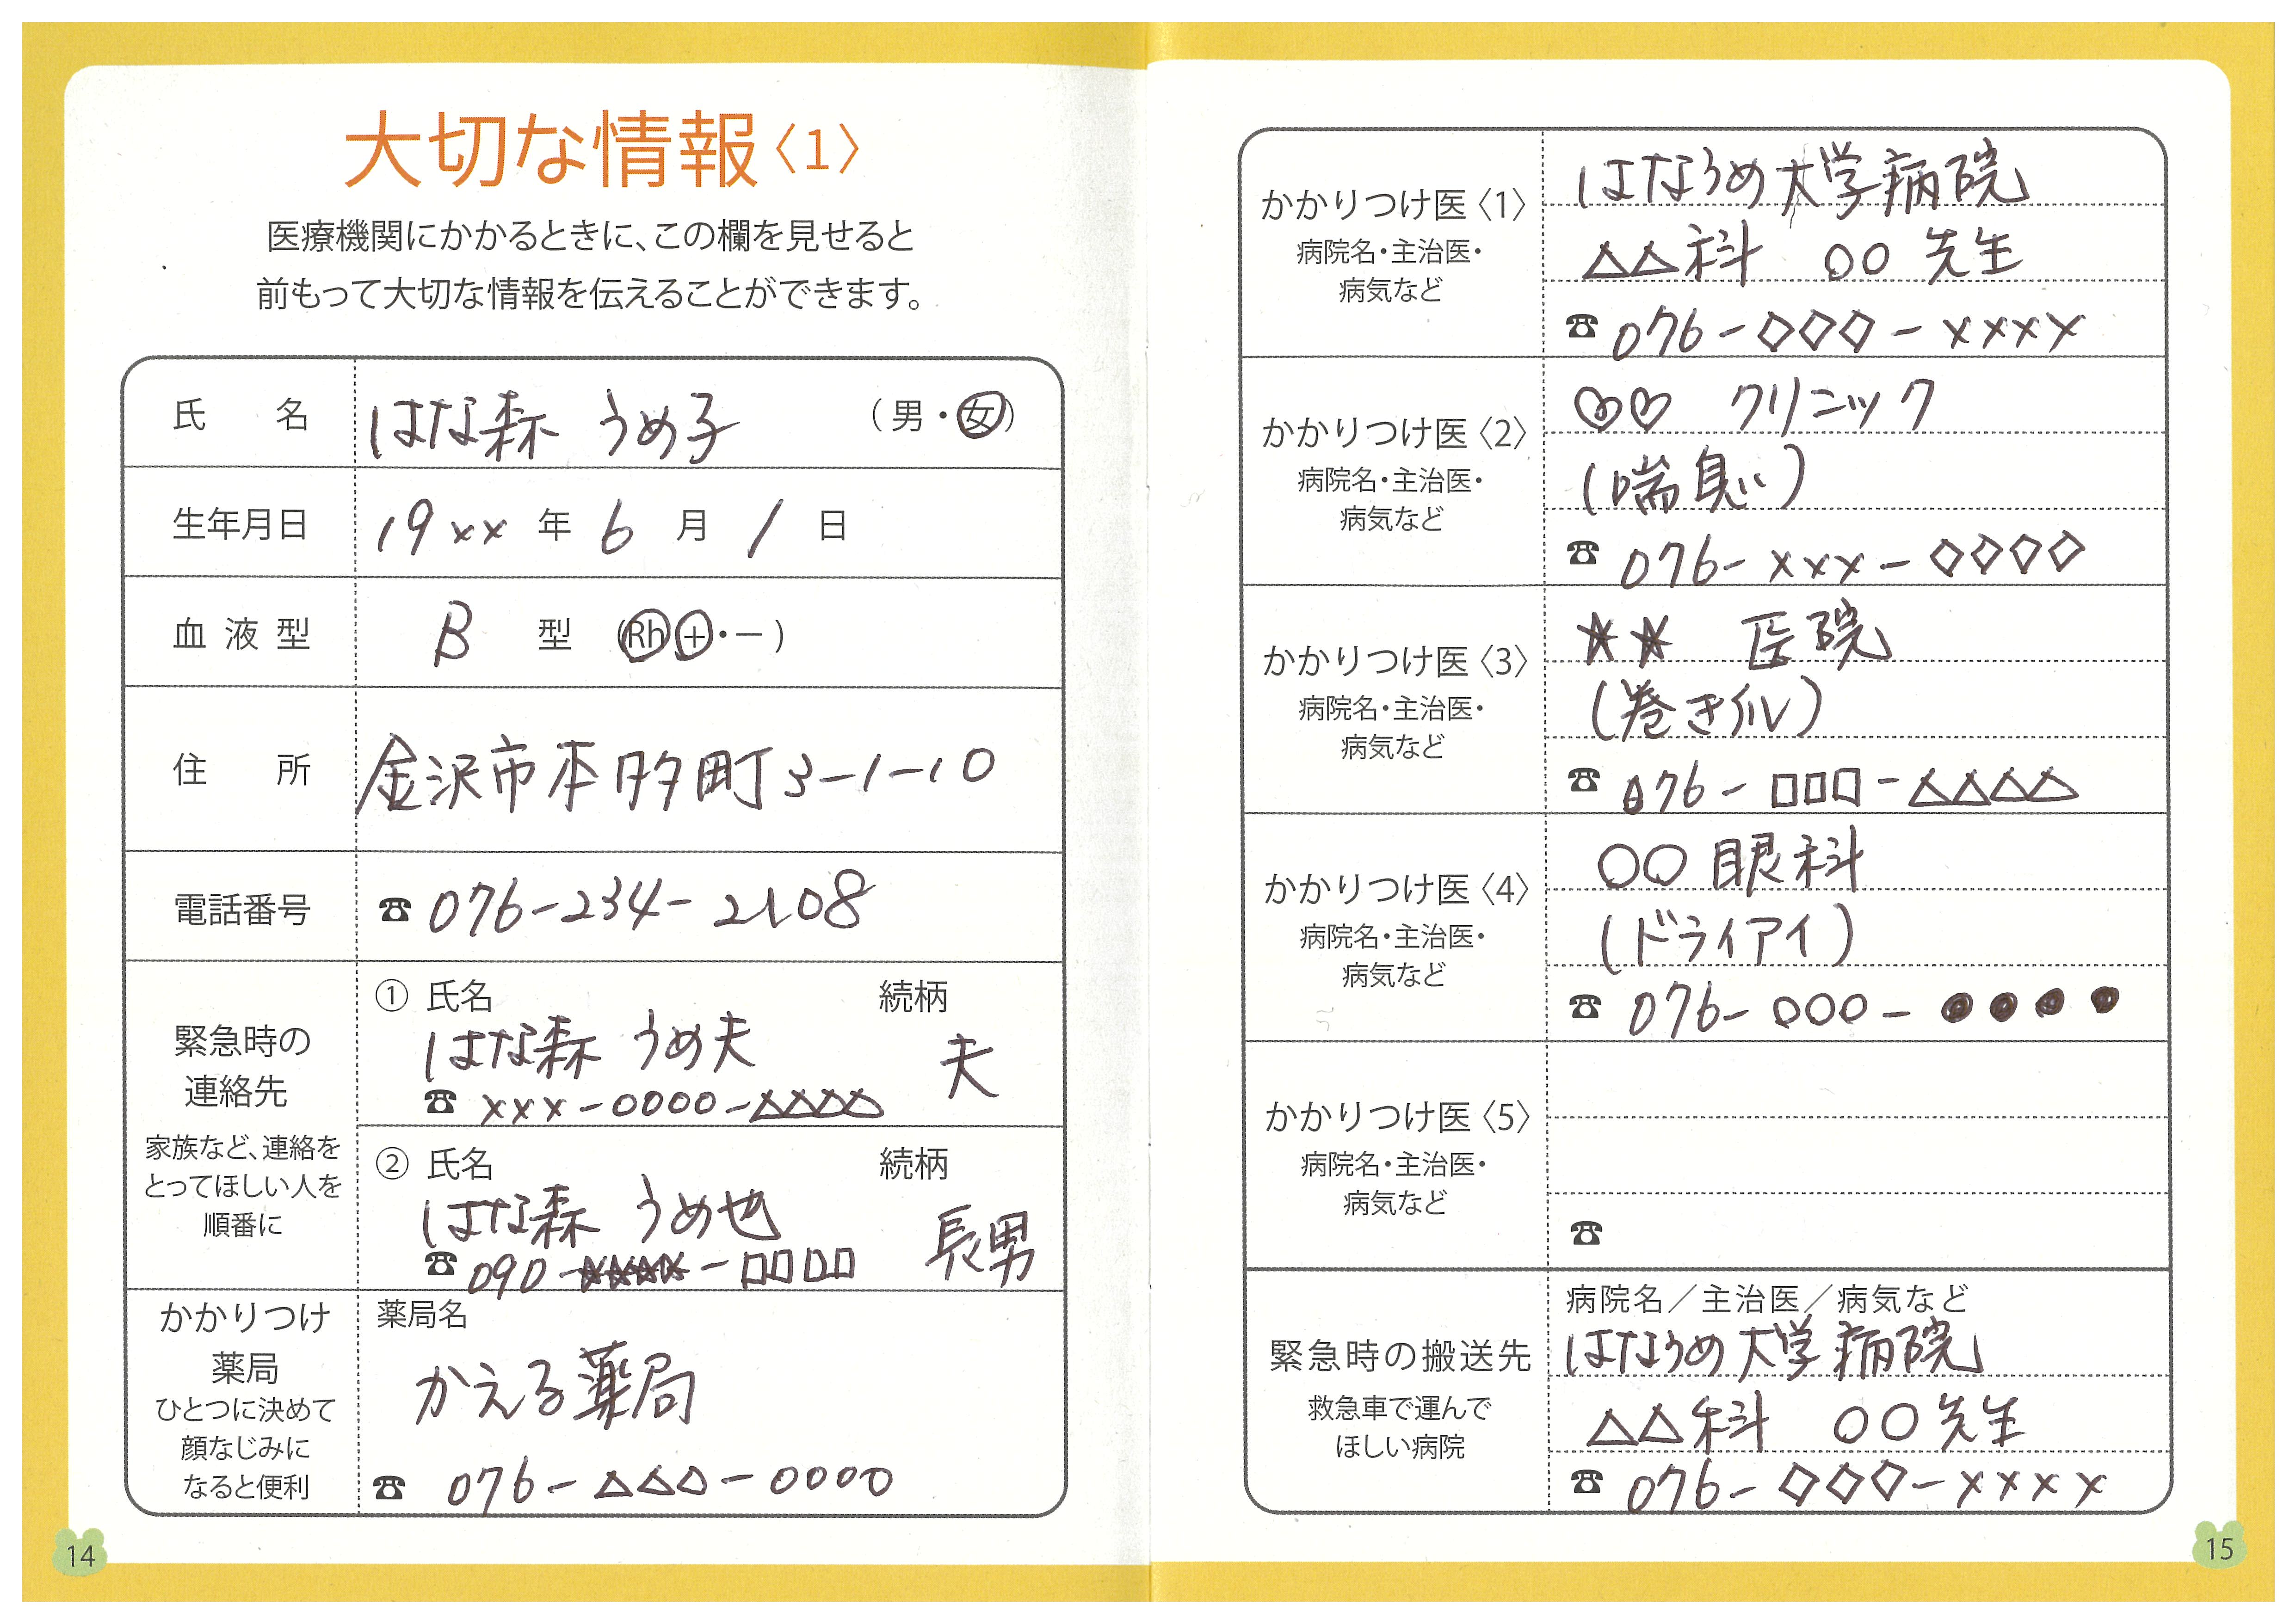 大切な情報〈1〉
医療機関にかかるときに、この欄を見せると
前もって大切な情報を伝えることができます。
氏名 はな森 うめ子 (男・女)
生年月日 19xx 年 6 月 1 日
血液型 B 型 (Rh +・−)
住所 金沢市本多町3-1-10
電話番号 ☎ 076-234-2108
緊急時の
連絡先
家族など、連絡を
とってほしい人を
順番に
① 氏名 続柄
はな森 うめ夫 夫
☎ xxx-0000-△△△△
② 氏名 続柄
はな森 うめ也 長男
☎ 090-☆☆☆☆-□□□□
かかりつけ
薬局
ひとつに決めて
顔なじみに
なると便利
薬局名
かえる薬局
☎ 076-△△△-0000
14
かかりつけ医〈1〉
病院名・主治医・
病気など
はなうめ大学病院
△△科 ○○ 先生
☎ 076-◇◇◇-xxxx
かかりつけ医〈2〉
病院名・主治医・
病気など
♡♡ クリニック
(喘息)
☎ 076-xxx-◇◇◇◇
かかりつけ医〈3〉
病院名・主治医・
病気など
★★ 医院
(巻き爪)
☎ 076-□□□-△△△△
かかりつけ医〈4〉
病院名・主治医・
病気など
○○眼科
(ドライアイ)
☎ 076-○○○-●●●●
かかりつけ医〈5〉
病院名・主治医・
病気など
☎
緊急時の搬送先
救急車で運んで
ほしい病院
病院名/主治医/病気など
はなうめ大学病院
△△科 ○○先生
☎ 076-◇◇◇-xxxx
15